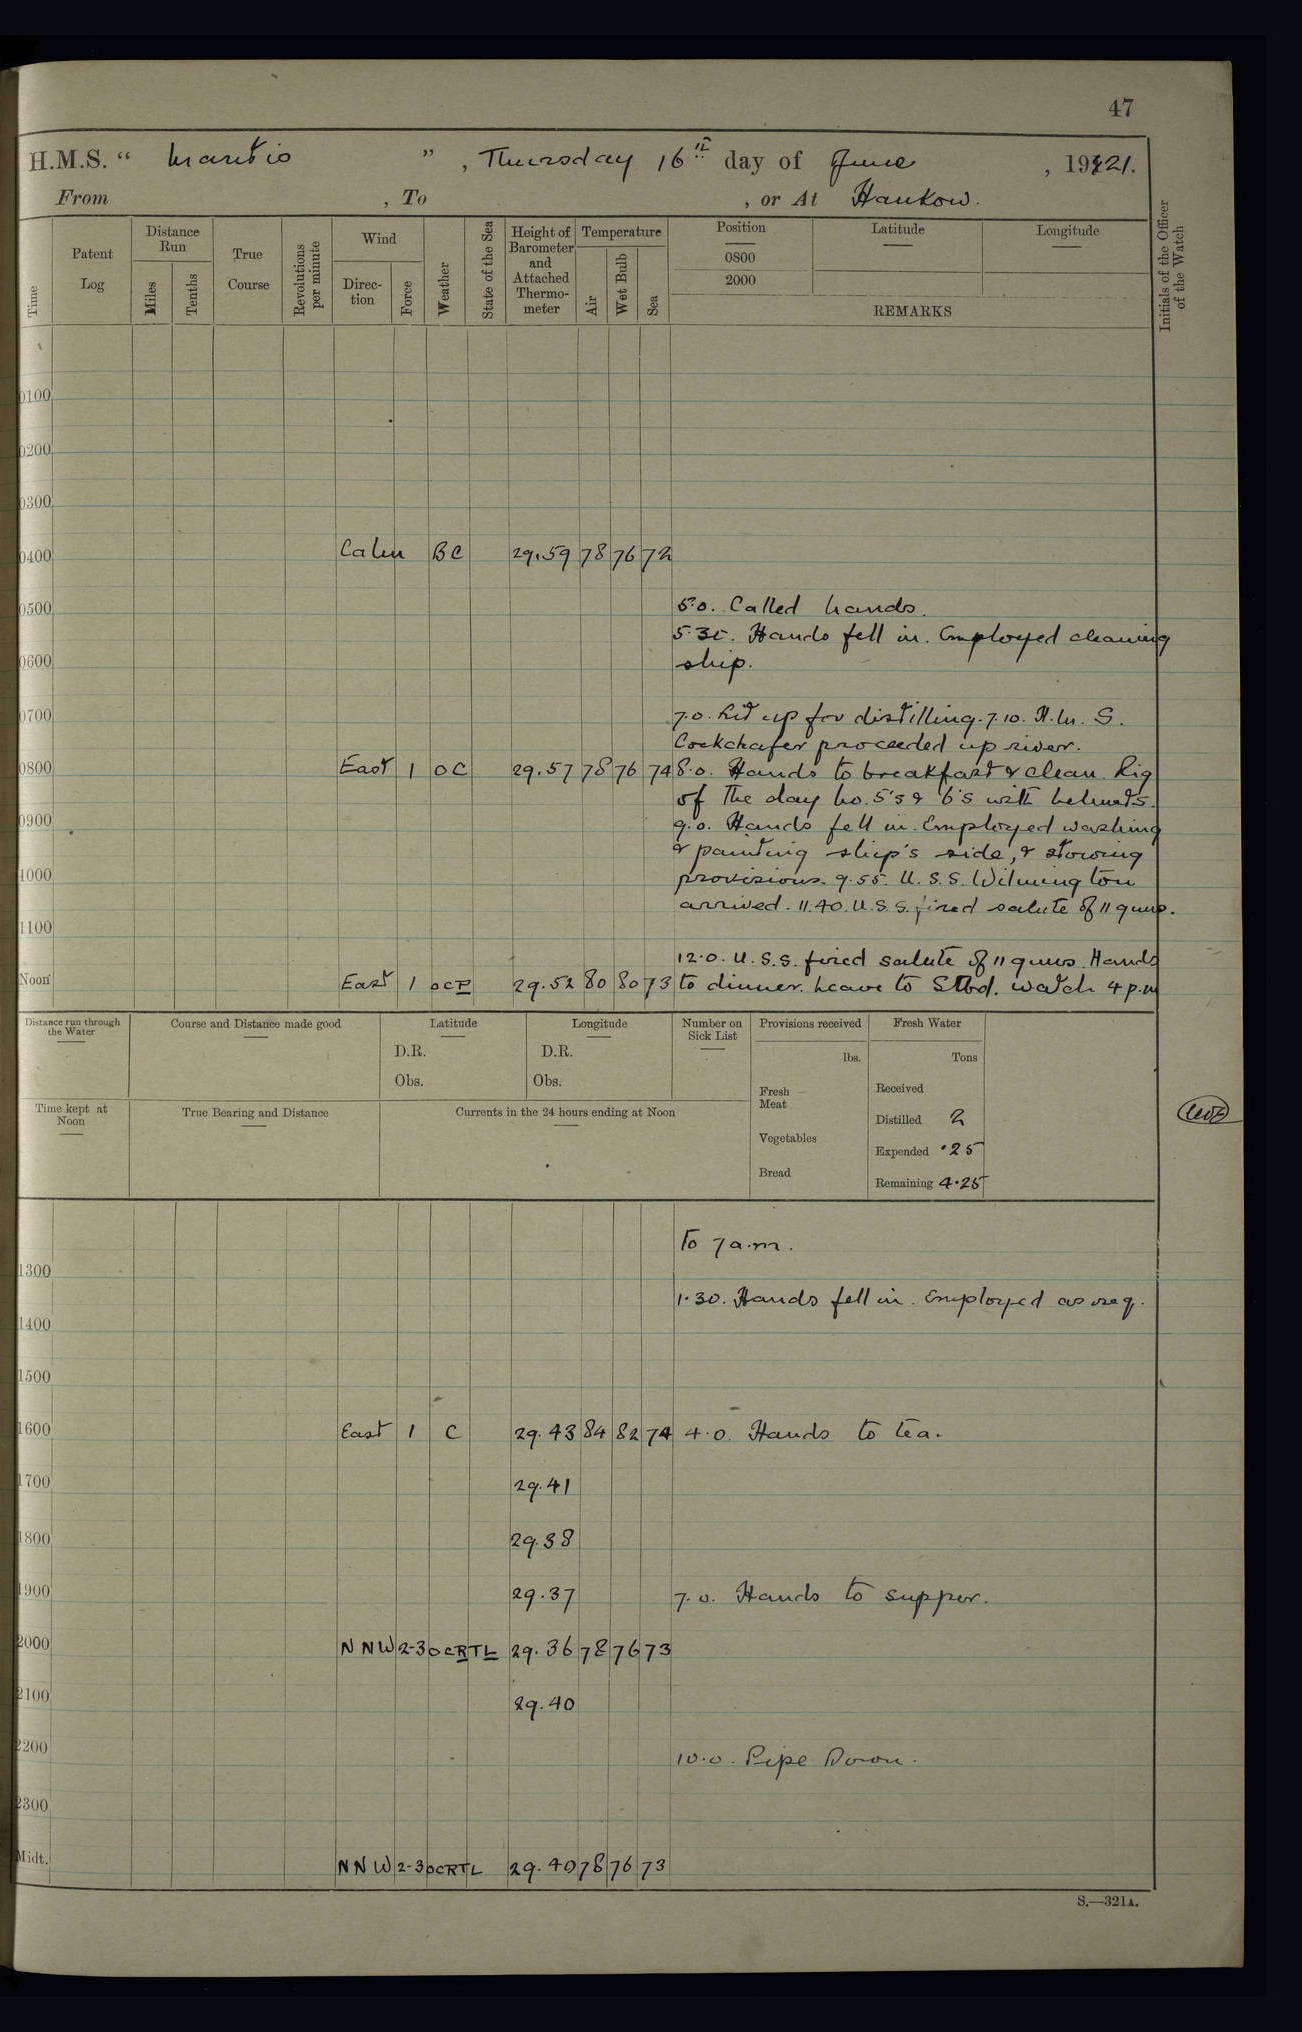 47
H.M.S. " Mantis " , Thursday 16th day of June , 1921.
From , To , or At Hankow.
Time
Patent Log
Distance Run
Miles
Tenths
True Course
Revolutions per minute
Wind
Direction
Force
Weather
State of the Sea
Height of Barometer and Attached Thermometer
Temperature
Air
Wet Bulb
Sea
Position
0800
2000
Latitude
Longitude
REMARKS
Initials of the Officer of the Watch
0100
0200
0300
0400 Calm BC 29.59 78 76 72
0500 5.0. Called hands.
5.30. Hands fell in. Employed cleaning
0600 ship.
0700 7.0. Lit up for distilling. 7.10. H.M.S.
Cockchafer proceeded up river.
0800 East 1 OC 29.57 78 76 74 8.0. Hands to breakfast & clean. Rig
of the day No. 5's & 6's with helmets.
0900 9.0. Hands fell in. Employed washing
& painting ship's side, & stowing
1000 provisions. 9.55. U.S.S. Wilmington
arrived. 11.40. U.S.S. fired salute of 11 guns.
1100
12.0. U.S.S. fired salute of 11 guns. Hands
Noon East 1 OCP 29.52 80 80 73 to dinner. Leave to Stbd. watch 4 p.m
Distance run through the Water
Course and Distance made good
Latitude
D.R.
Obs.
Longitude
D.R.
Obs.
Number on Sick List
Provisions received
lbs.
Fresh Meat
Vegetables
Bread
Fresh Water
Tons
Received
Distilled 2
Expended .25
Remaining 4.25
Time kept at Noon
True Bearing and Distance
Currents in the 24 hours ending at Noon
To 7 a.m.
1300 1.30. Hands fell in. Employed as req.
1400
1500
1600 East 1 C 29.43 84 82 74 4.0. Hands to tea.
1700 29.41
1800 29.38
1900 29.37 7.0. Hands to supper.
2000 NNW 2-3 OCRTL 29.36 78 76 73
2100 29.40
2200 10.0. Pipe Down.
2300
Midt. NNW 2-3 OCRTL 29.40 78 76 73
S.—321A.